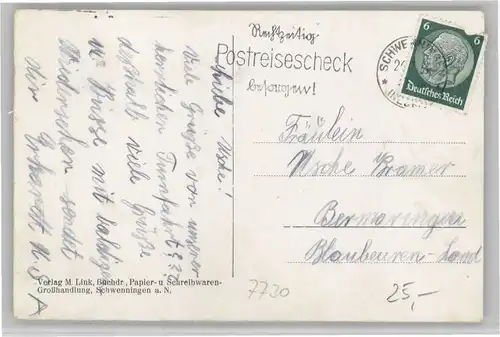 Rechtzeitig
Postreisescheck
besorgen!
SCHWENNINGEN
6 6
Deutsches Reich
Liebe Usche!
Viele Grüße von unserer
herrlichen
deshalb viele Grüße
u. Küsse mit baldigem
Wiedersehen sendet
dir
Fräulein
Usche Kramer
Bermaringen
Blaubeuren-Land
Verlag M. Link, Buchdr., Papier- u Schreibwaren-
Großhandlung, Schwenningen a. N.
7730
25,-